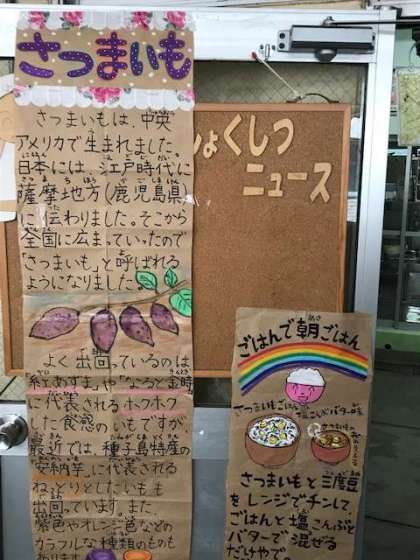 さつまいも
さつまいもは、中央
アメリカで生まれました。
日本には、江戸時代に
薩摩地方(鹿児島県)
に伝わりました。そこから
全国に広まっていったので
「さつまいも」と呼ばれる
ようになりました。
よく出回っているのは
紅あずま」や「なると金時」
に代表されるホクホク
した食感のいもですが、
最近では、種子島特産の
「安納芋」に代表される
ねっとりとしたいもも
出回っています。また、
紫色やオレンジ色などの
カラフルな種類のものも
あります
しょくしつ
ニュース
ごはんで朝ごはん
さつまいもごはん
塩こんぶバター味
さつまいもと三度豆
をレンジでチンして、
ごはんと塩こんぶと
バターで混ぜる
だけやで